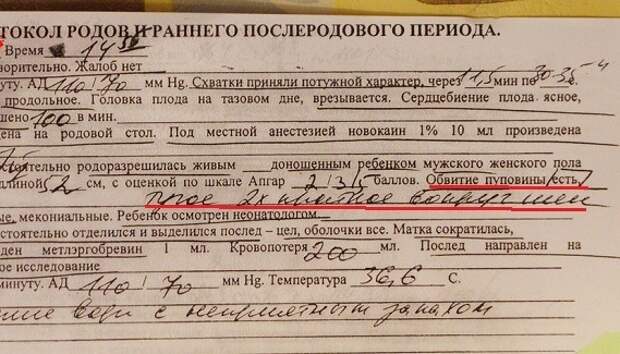 ТОКОЛ РОДОВ И РАННЕГО ПОСЛЕРОДОВОГО ПЕРИОДА.
Время 14 50
ворительно. Жалоб нет
нуту. АД 110 / 70 мм Hg. Схватки приняли потужной характер, через 1-1,5 мин по 30-35
продольное. Головка плода на тазовом дне, врезывается. Сердцебиение плода ясное,
шено 100 в мин.
дена на родовой стол. Под местной анестезией новокаин 1% 10 мл произведена
стоятельно родоразрешилась живым доношенным ребенком мужского женского пола
длиной 52 см, с оценкой по шкале Апгар 2/3/5 баллов. Обвитие пуповины /есть,/
тугое 2х кратное вокруг шеи
ные, мекониальные. Ребенок осмотрен неонатологом.
стоятельно отделился и выделился послед – цел, оболочки все. Матка сократилась,
ден метлэргобревин 1 мл. Кровопотеря 200 мл. Послед направлен на
ое исследование
минуту. АД 110 / 70 мм Hg. Температура 36,6 С.
воды с неприятным запахом